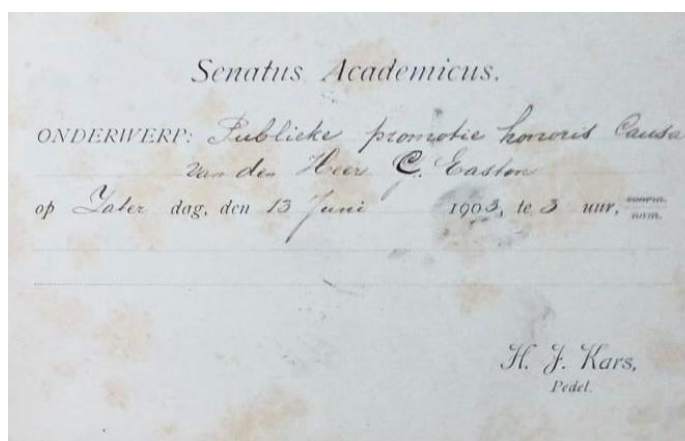 Senatus Academicus.
ONDERWERP: Publieke promotie honoris Causa
van den Heer C. Easton
op Zater dag, den 13 Juni 1903, te 3 uur, voorm.
nam.
H. J. Kars,
Pedel.